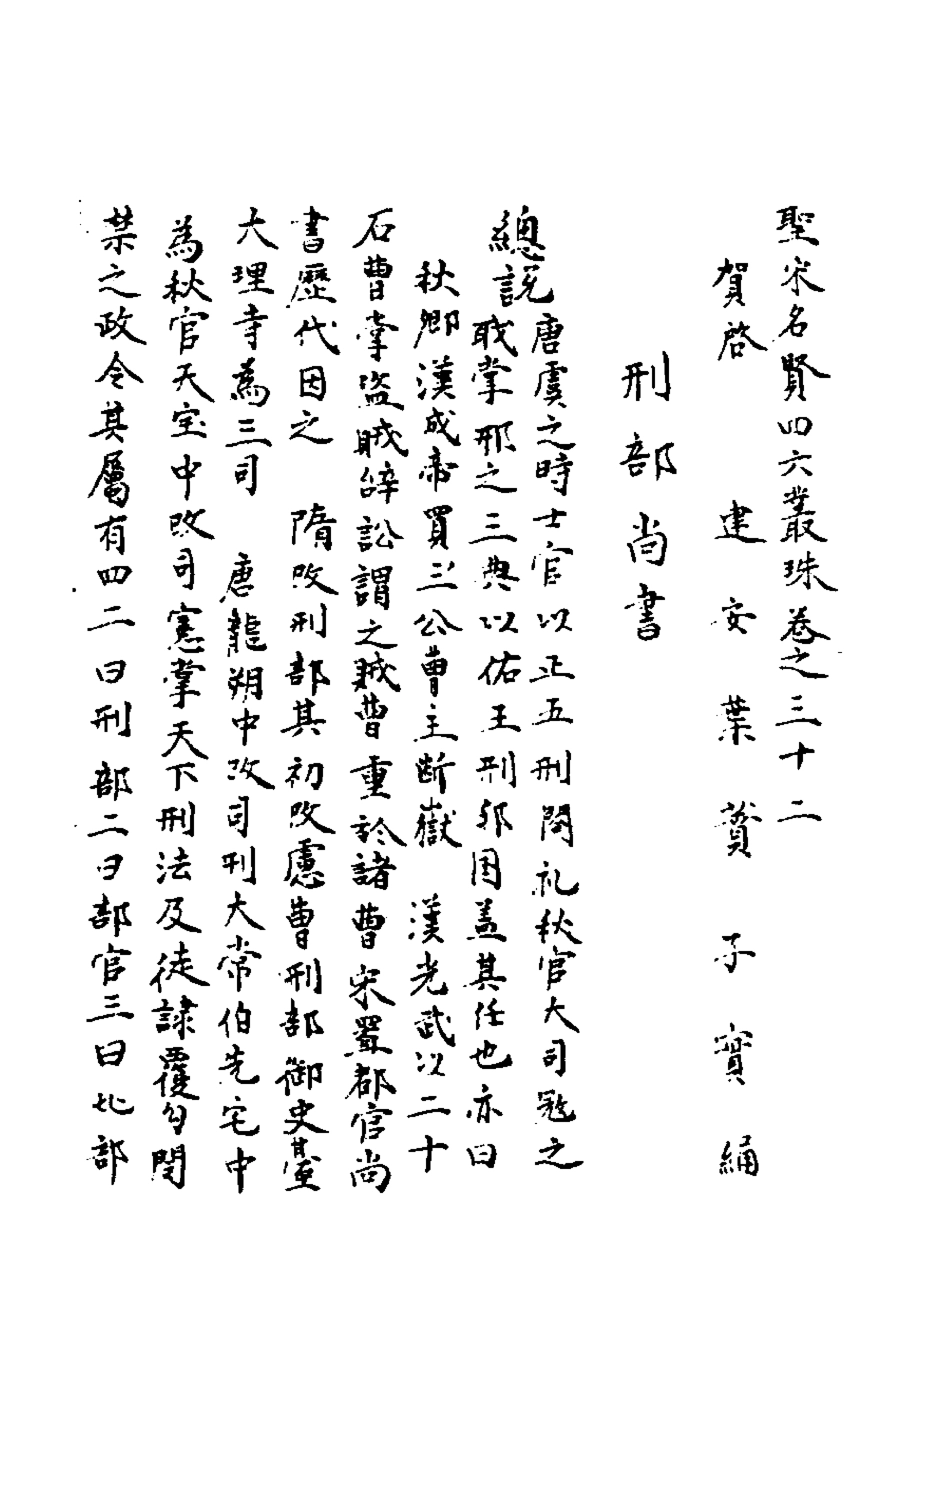 聖宋名賢四六叢珠卷之三十二
賀啓 建安葉蕡子實編
刑部尚書
總説唐虞之時士官以正五刑閱礼秋官大司寇之
職掌邢之三典以佑王刑邦困盖其任也亦曰
秋卿漢成帝買三公曹主断嶽 漢光武以二十
石曹掌盗賊辝訟謂之賊曹重於諸曹宋置都官尚
書歷代因之 隋改刑部其初改慮曹刑部御史臺
大理寺為三司 唐龍朔中改司刑大常伯先宅中
為秋官天宝中改司憲掌天下刑法及徒隷覆勾関
禁之政令其屬有四二曰刑部二曰部官三曰比部